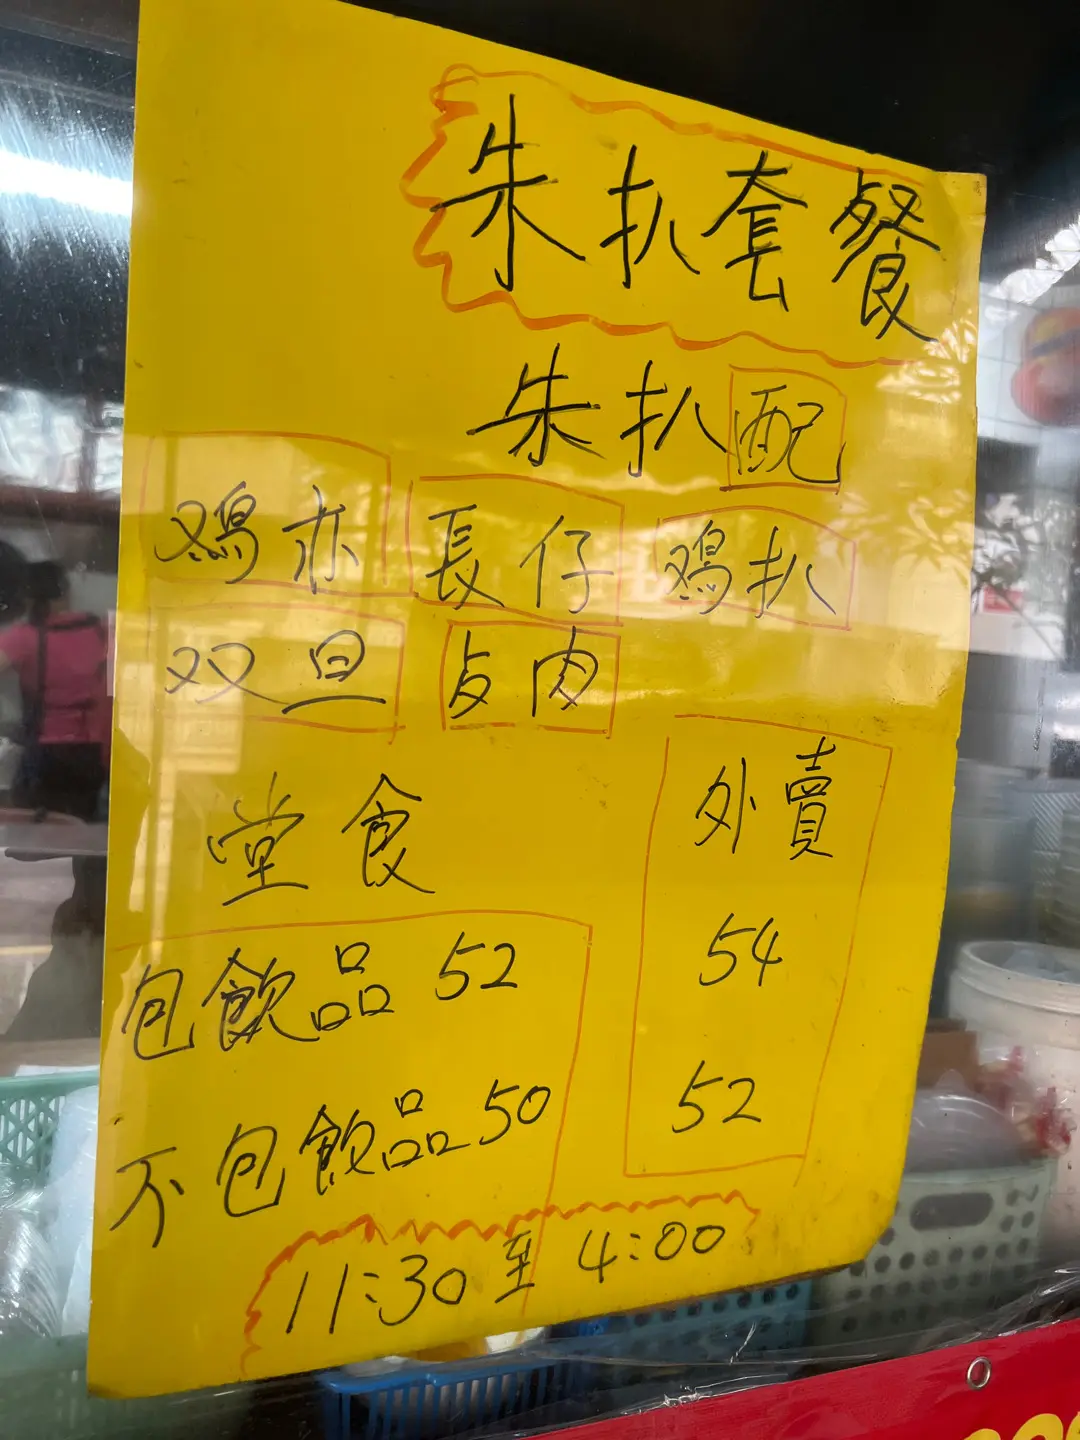 朱扒套餐
朱扒配
鸡亦 長仔 鸡扒
双旦 卤肉
堂食 外賣
包飲品 52 54
不包飲品 50 52
11:30 至 4:00